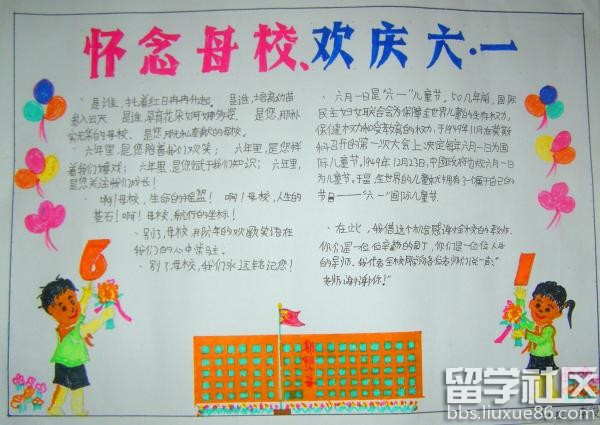 怀念母校、欢庆六·一
是谁,托着红日冉冉升起。是谁,培育幼苗
参入云天 是谁,孕育花朵如 多姿 是您,那朴
实无华的母校、是您
六年里,是您陪着我们欢笑;六年里,是您伴
着我们嬉戏;六年里,是您赋于我们知识;六年里,
是您关注我们成长!
啊!母校,生命的摇篮!啊!母校,人生的
基石!啊!母校,航行的坐标!
别了,母校,用阶年的欢歌笑语在
我们的心中常驻.
别了母校,我们永远铭记您!
六月一日是“六一”儿童节。50几年前,国际
民主妇女联合会为保障全世界儿童的生存权力,
保健权力和受教育的权力,于1949年11月在莫斯
科召开的第一次大会上决定每六月一日为国
际儿童节。1949年12月23日,中国政府也规六月一日
为儿童节。于是,全世界的儿童就拥有了个属于自己的
节日——“六一”国际儿童节.
在此,我借这个机会感谢 的老师.
你们是一位 的园丁,你们是一位位人生
的导师。我代表全校同学向各位老师们说一声:“
老师,谢谢你!”
6
1
留学社区
bbs.liuxue86.com